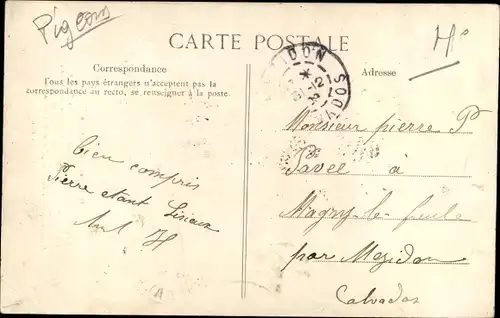 Pigeons
CARTE POSTALE
Correspondance
Tous les pays étrangers n'acceptent pas la
correspondance au recto, se renseigner à la poste.
Adresse
Monsieur pierre P
Pavel à
Magny-le-freule
par Mezidon
Calvados
bien compris
Pierre étant